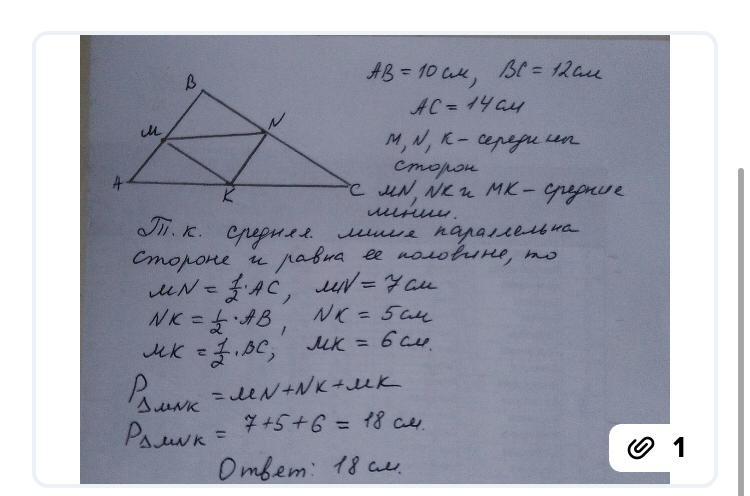 AB = 10 см, BC = 12 см
AC = 14 см
M, N, K – середины
сторон
MN, NK и MK – средние
линии.
B
M
N
A
K
C
Т.к. средняя линия параллельна
стороне и равна её половине, то
MN = 1/2 · AC, MN = 7 см
NK = 1/2 · AB, NK = 5 см
MK = 1/2 · BC, MK = 6 см.
P△MNK = MN + NK + MK
P△MNK = 7 + 5 + 6 = 18 см.
Ответ: 18 см.
1